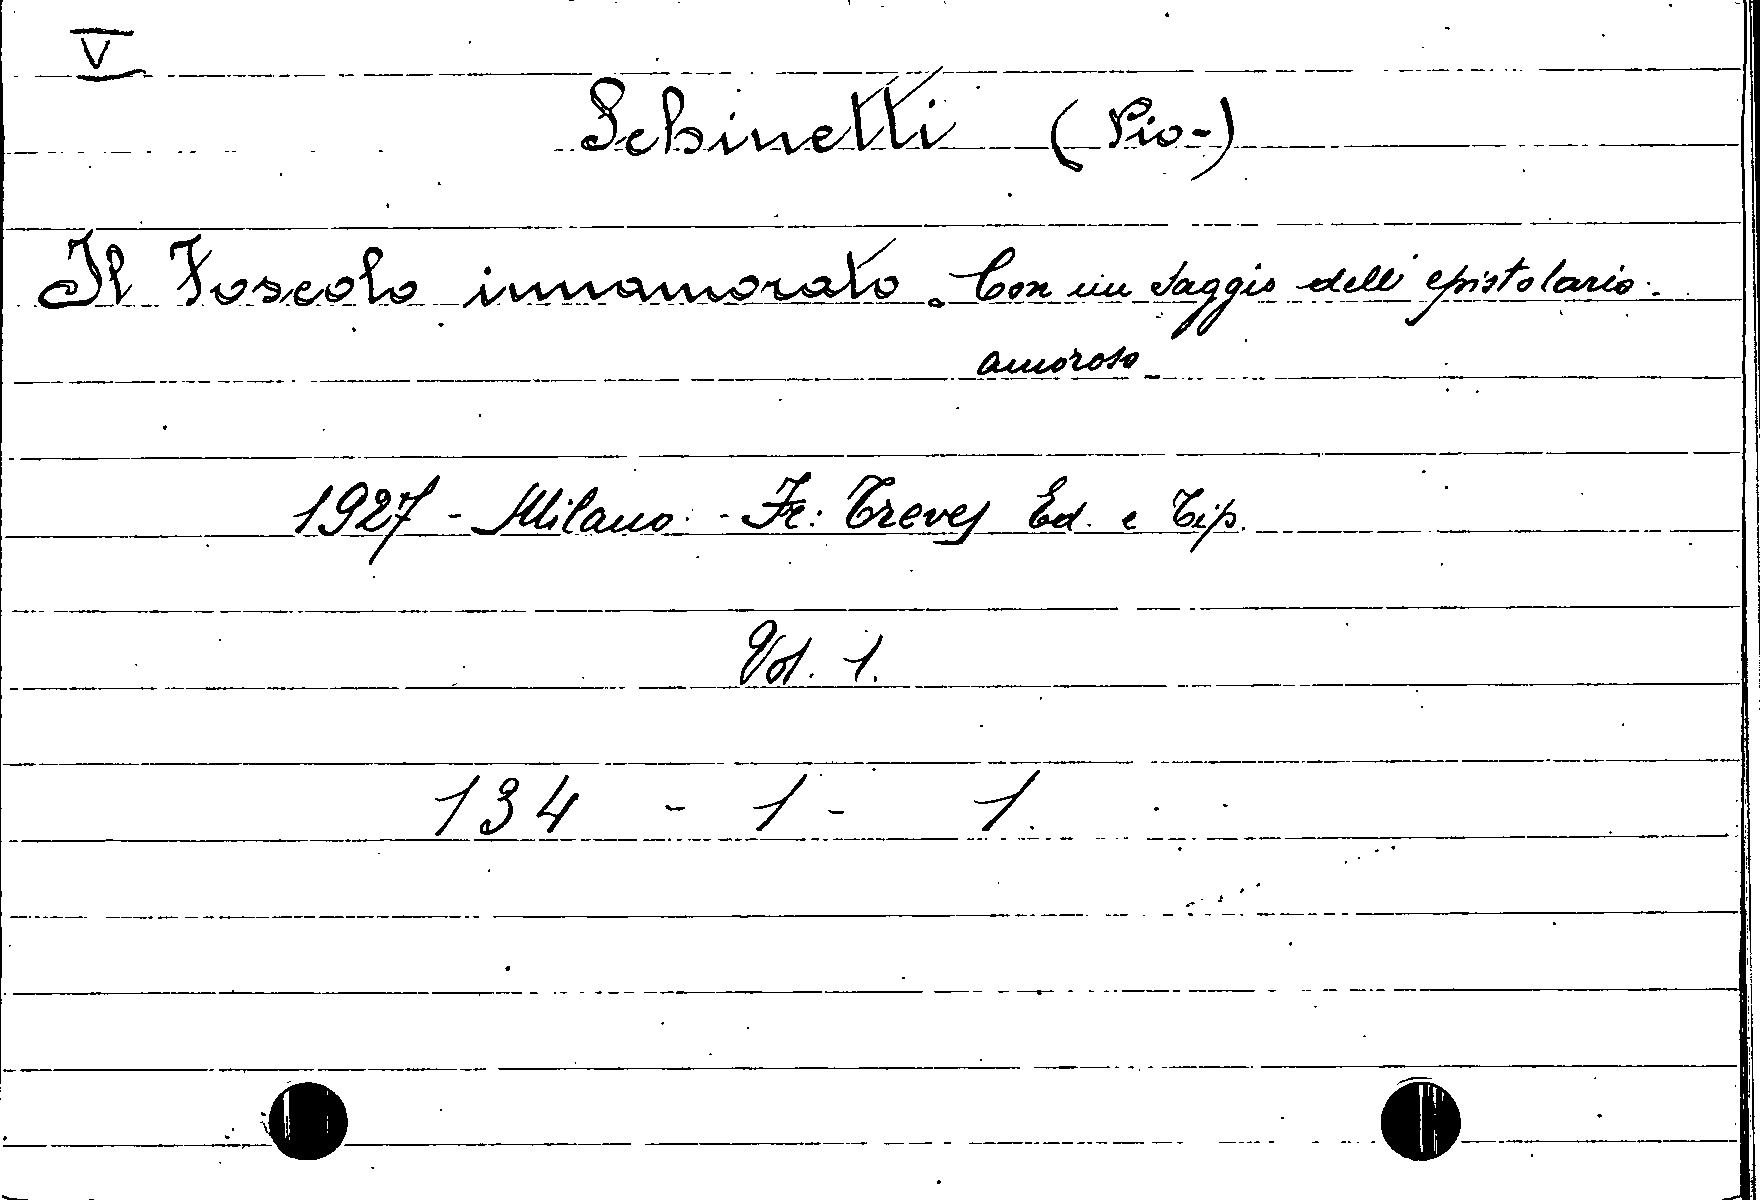 V
Schinetti (Pio-)
Il Foscolo innamorato. Con un saggio dell'epistolario.
amoroso_
1927 - Milano - Fr: Treves Ed. e Tip.
Vol. 1.
134 - 1 - 1.